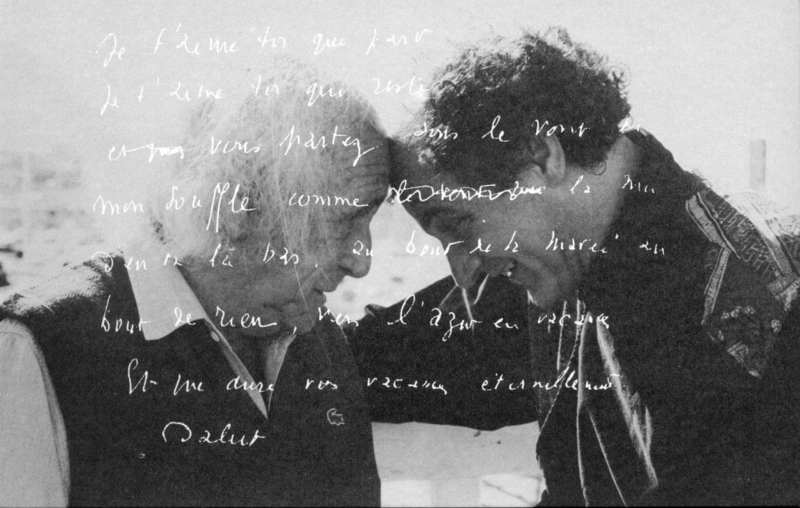 Je t'aime toi qui part
Je t'aime toi qui reste
et vous partez dans le vent de
mon souffle comme la
là bas. Au bout de la marée au
bout de rien, vers l'azur en vacances
Et que dure vos vacances éternellement.
Salut